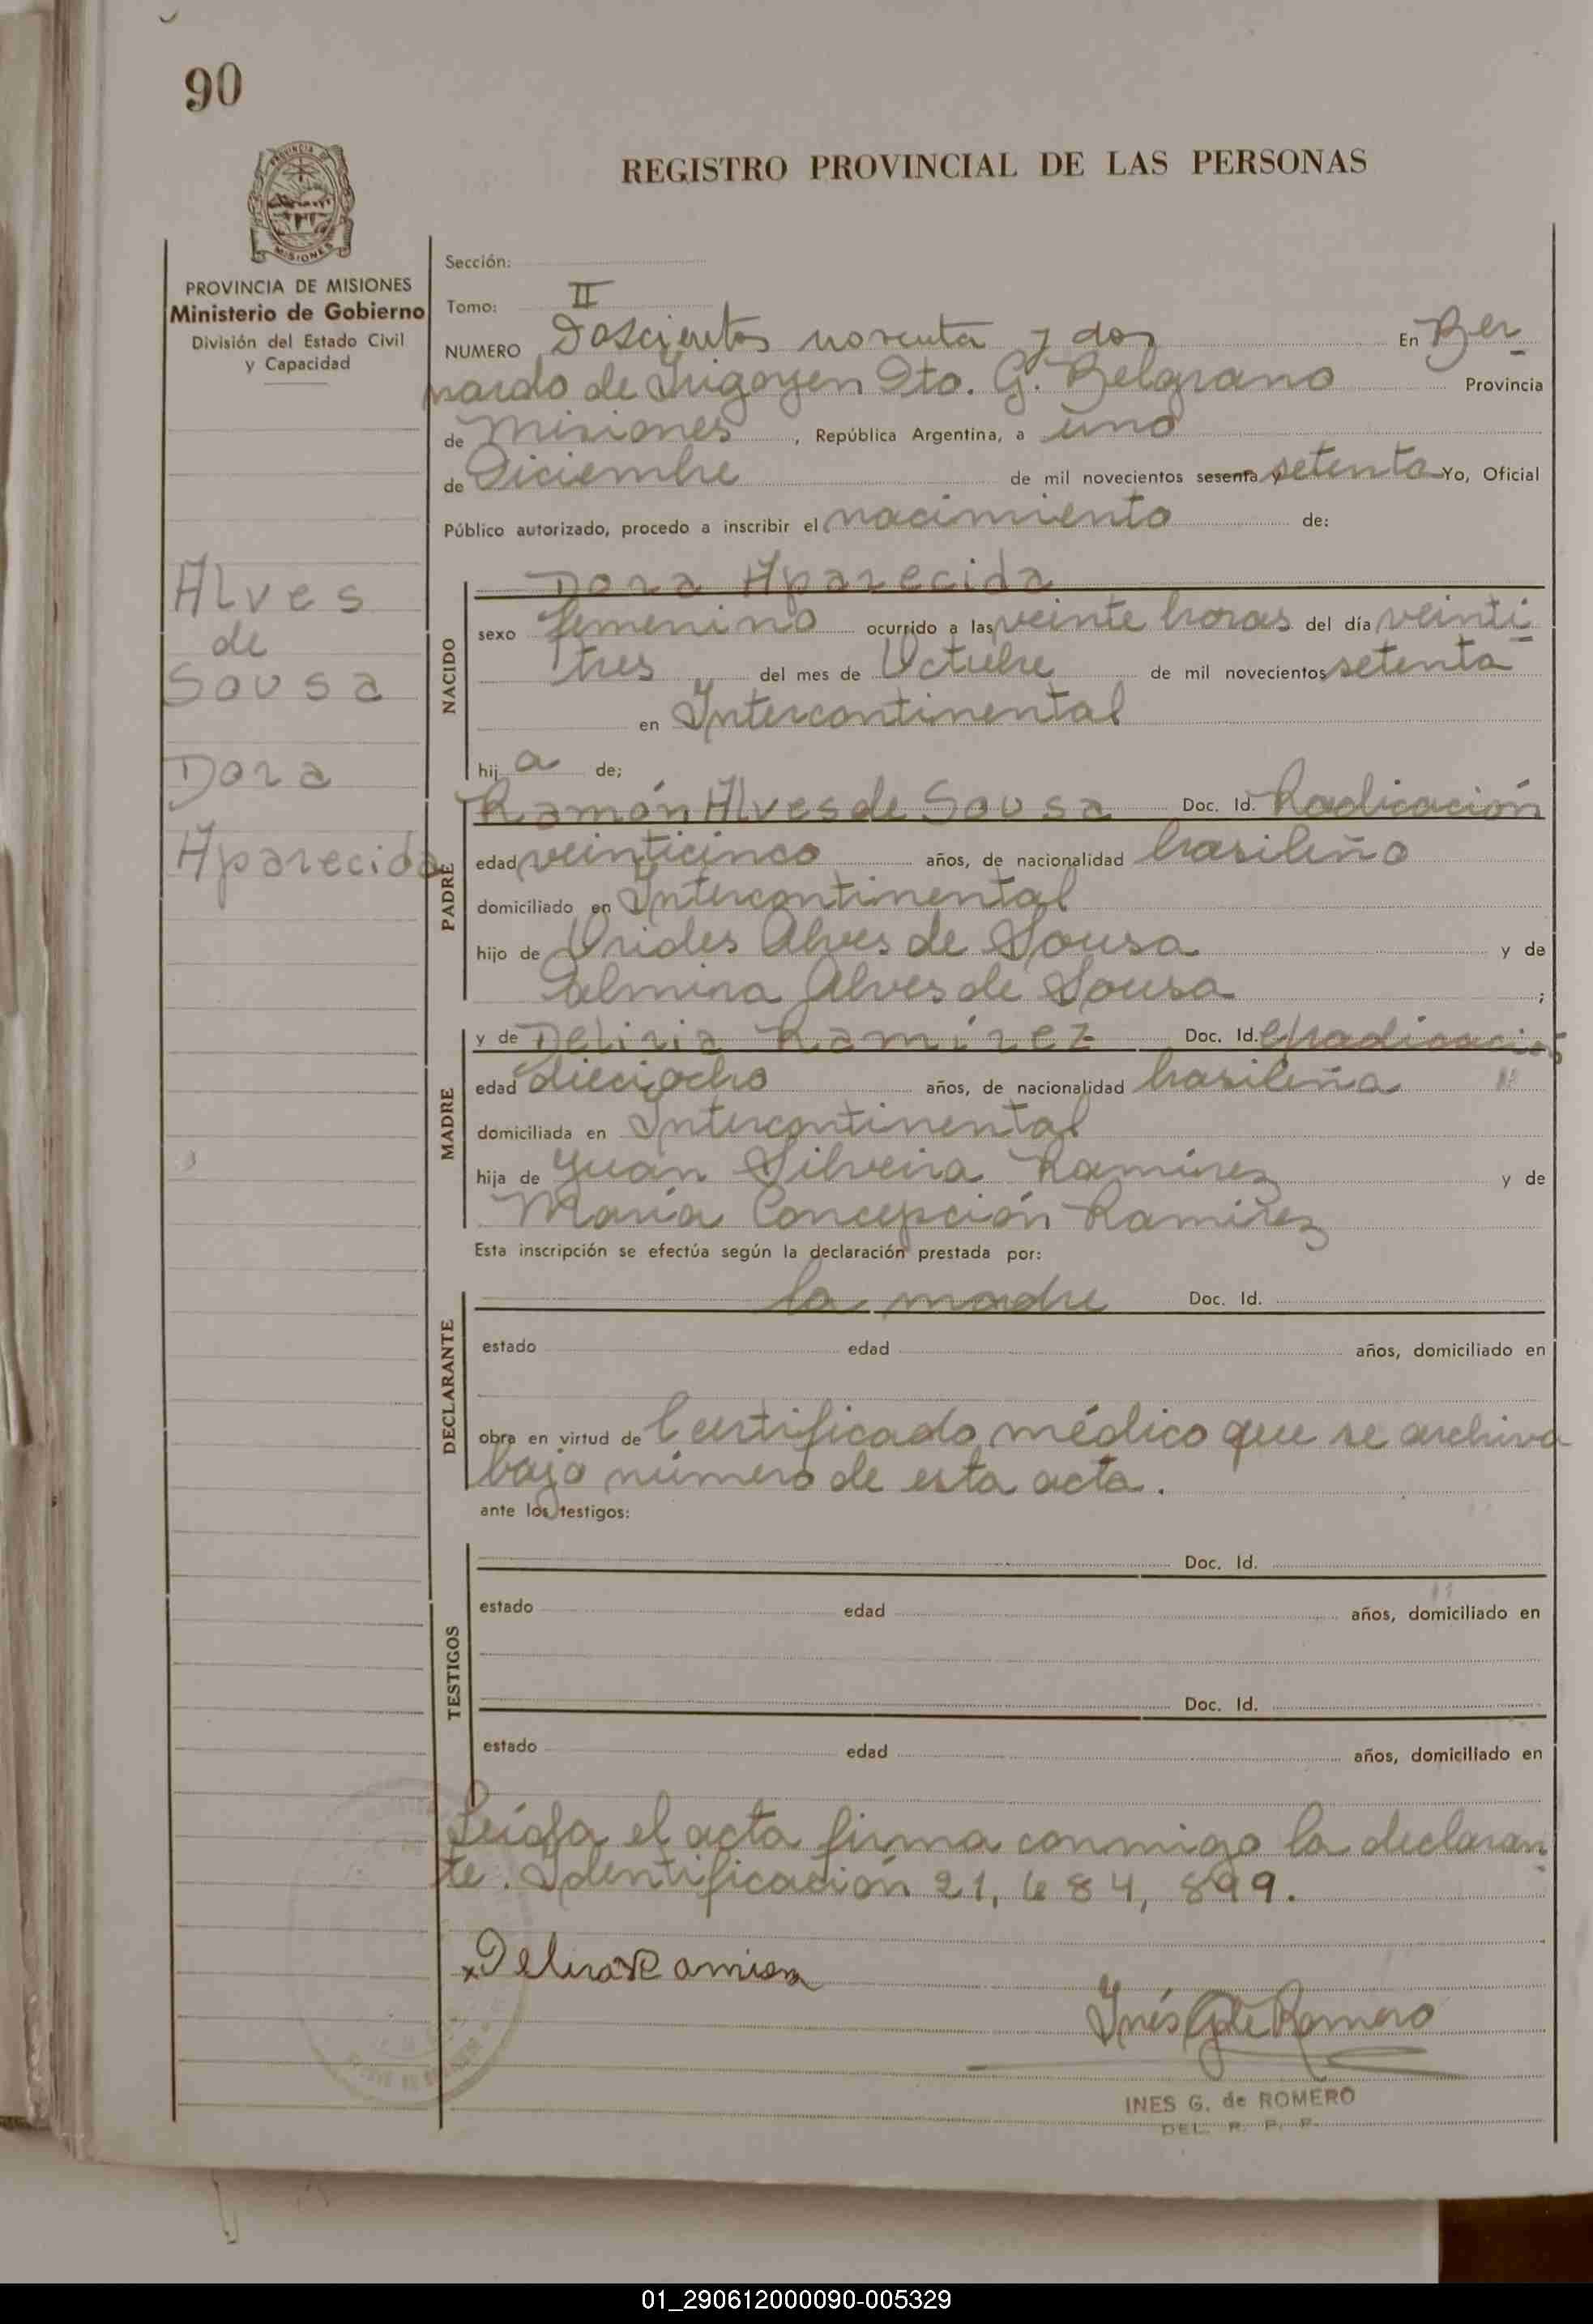 90
REGISTRO PROVINCIAL DE LAS PERSONAS
PROVINCIA DE
MISIONES
PROVINCIA DE MISIONES
Ministerio de Gobierno
División del Estado Civil
y Capacidad
Alves
de
Sousa
Dora
Aparecida
Sección:
Tomo: II
NUMERO Doscientos noventa y dos En Ber
nardo de Irigoyen Dto. G. Belgrano Provincia
de Misiones, República Argentina, a uno
de Diciembre de mil novecientos sesenta y setenta Yo, Oficial
Público autorizado, procedo a inscribir el nacimiento de:
NACIDO
Dora Aparecida
sexo femenino ocurrido a las veinte horas del día veinti
tres del mes de Octubre de mil novecientos setenta
en Intercontinental
hija de;
PADRE
Ramón Alves de Sousa Doc. Id. Radicación
edad veinticinco años, de nacionalidad brasileño
domiciliado en Intercontinental
hijo de Orides Alves de Sousa y de
Palmira Alves de Sousa;
MADRE
y de Deliria Ramírez Doc. Id.
edad dieciocho años, de nacionalidad brasileña
domiciliada en Intercontinental
hija de Juan Silveira Ramírez y de
María Concepción Ramírez
Esta inscripción se efectúa según la declaración prestada por:
DECLARANTE
la madre Doc. Id.
estado edad años, domiciliado en
obra en virtud de Certificado médico que se archiva
bajo número de esta acta.
ante los testigos:
TESTIGOS
Doc. Id.
estado edad años, domiciliado en
Doc. Id.
estado edad años, domiciliado en
Leída el acta firma conmigo la declaran
te. Identificación 21,684,899.
x Inés G de Romero
INES G. de ROMERO
DEL. R. P. P.
01_290612000090-005329